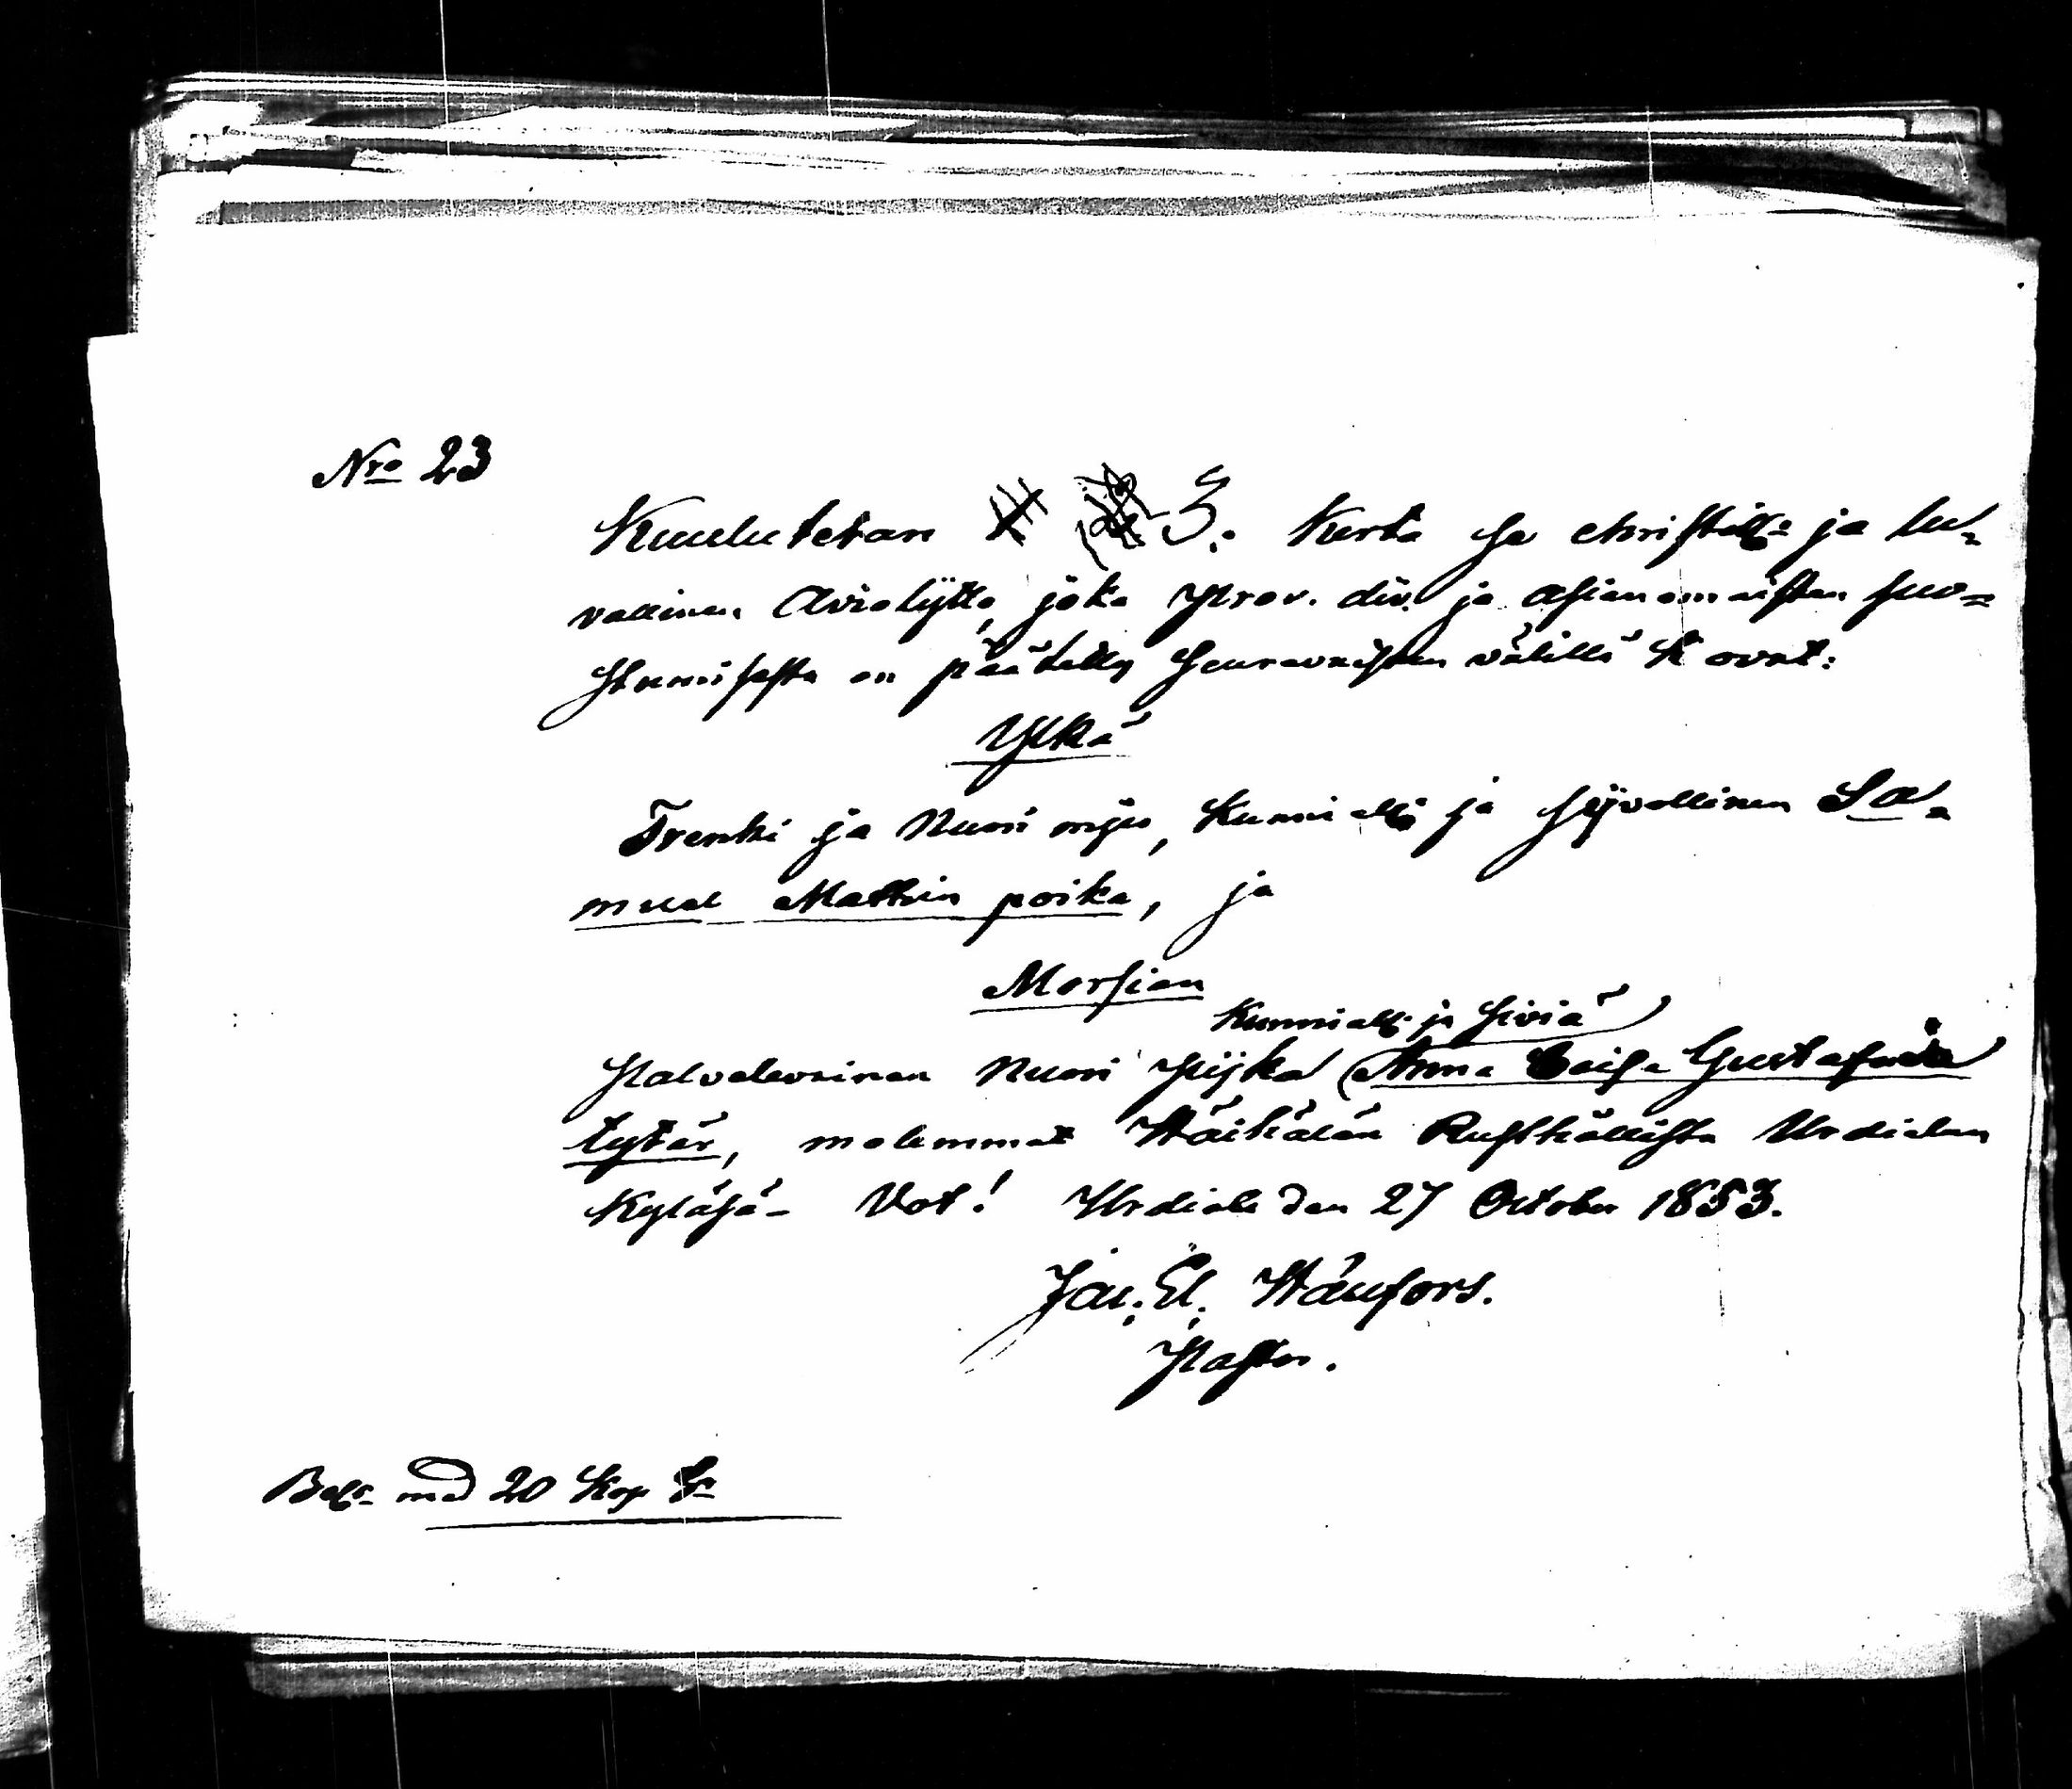 Nro 23
Kuulutetan 3. Kerta se christill: ja lu-
vallinen Avioliitto, joka Prov. div. ja asianomaisten suo=
stumisesta on päätetty seuravaisten välillä K ovat:
Ylkä
Trenki ja Nuori mijes, Kunniall: ja sijvollinen Sa-
muel Mattin poika, ja
Morsian
Kunniall: ja siviä
Palvelevainen Nuori Pijka Anna Caisa Gustafin
tytär, molemmat Häihälän Rusthållista Urdialan
Kyläsä - Vot! Urdiala den 27 October 1853.
Jac. El. Häufors.
Pastor.
Beta. med 20 Kop Sr